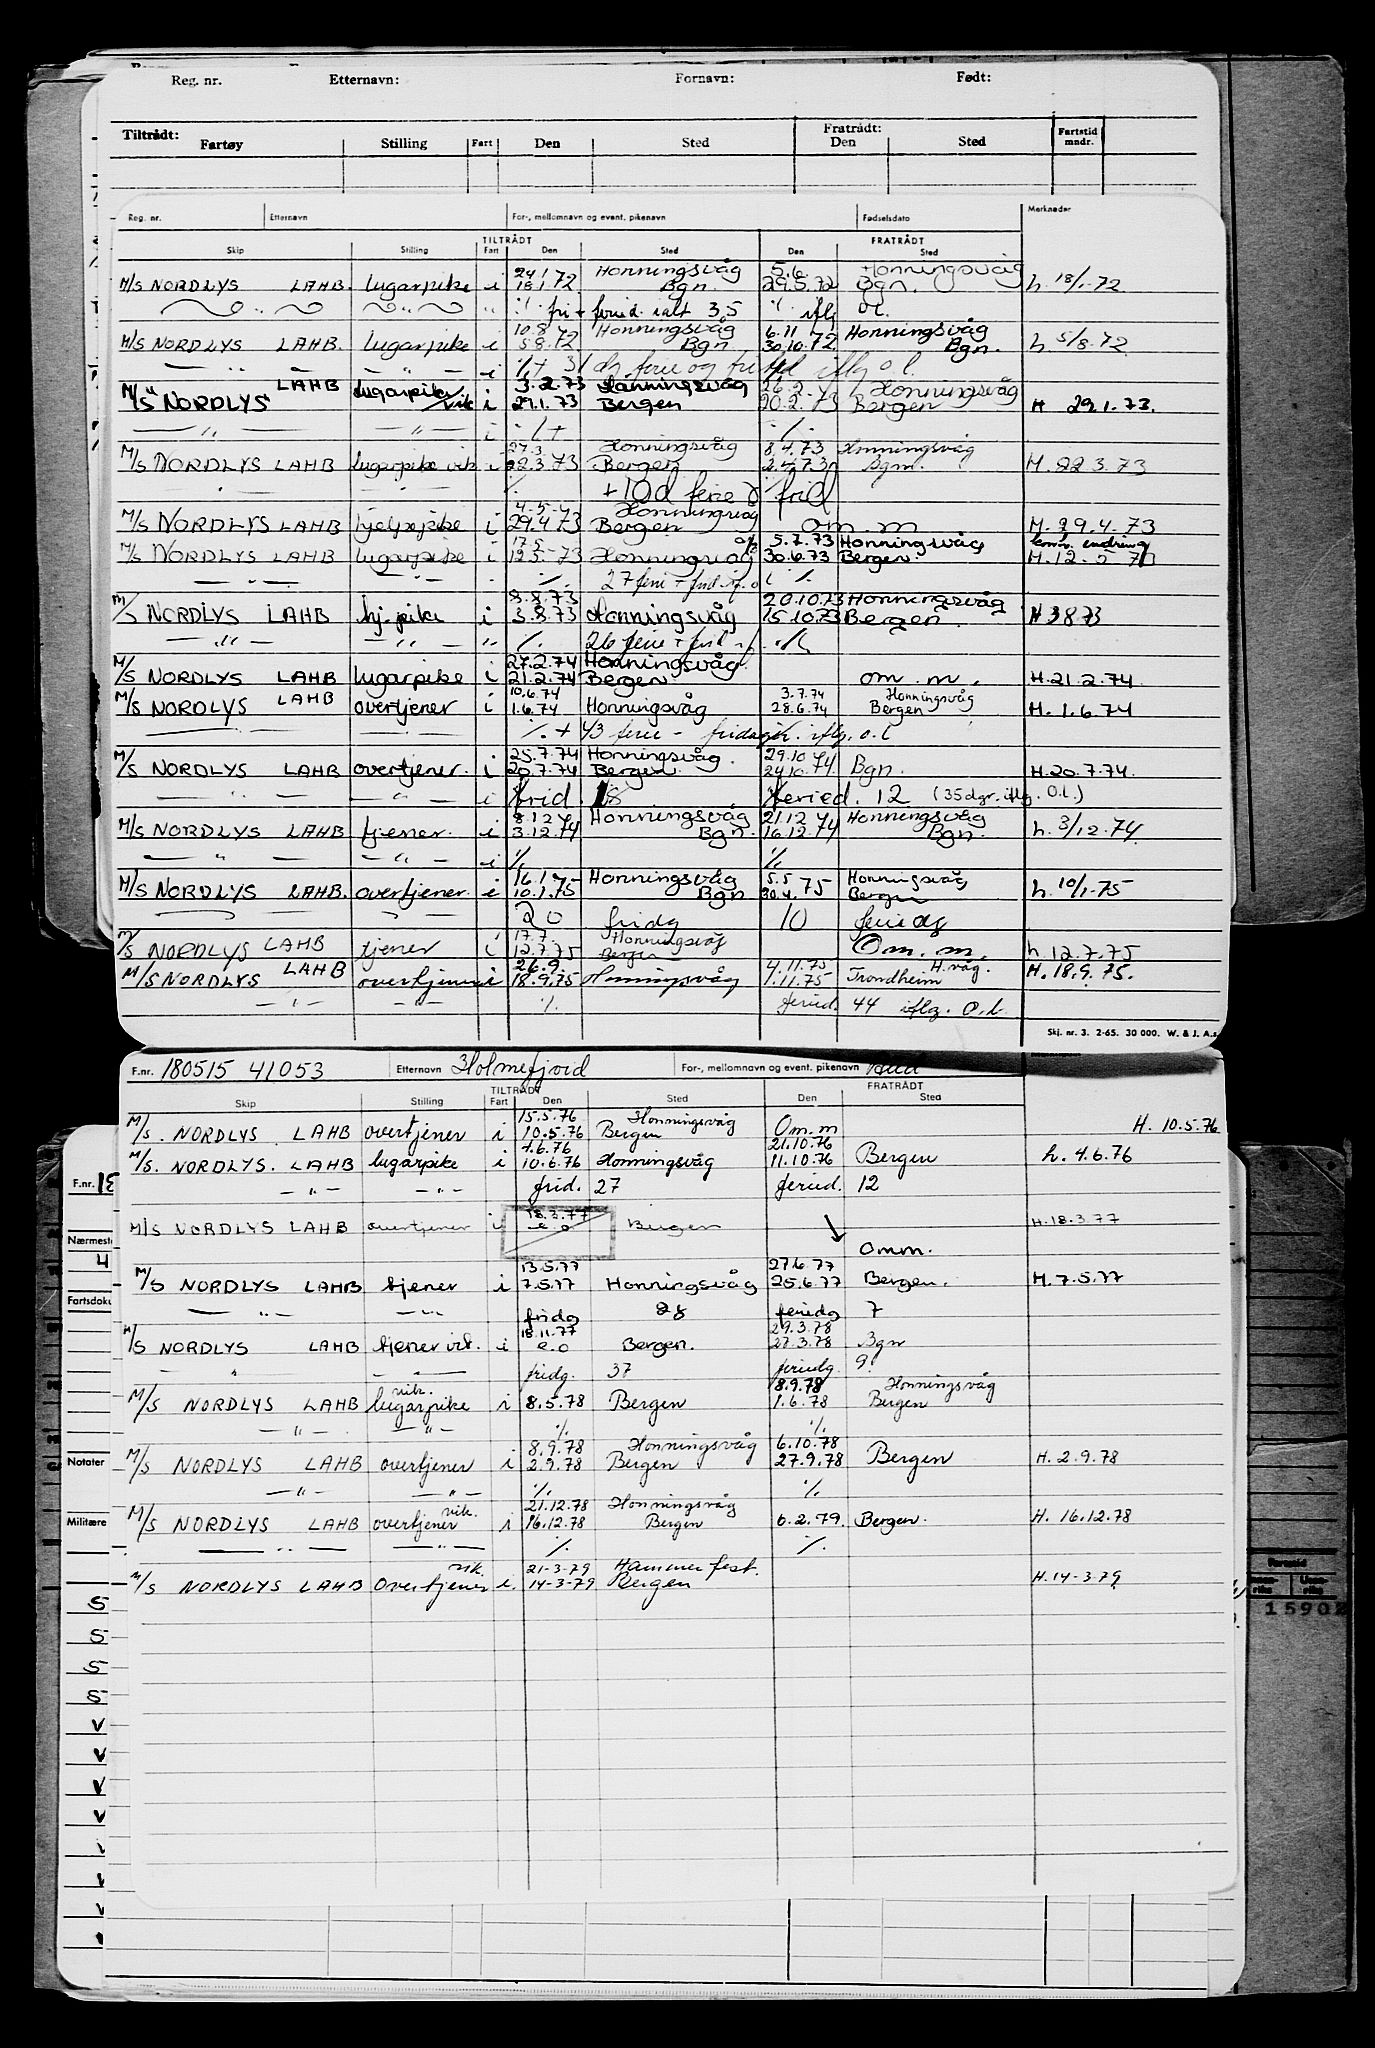 Reg. nr. Etternavn: Fornavn: Født:
Tiltrådt: Fratrådt: Fartstid
Fartøy Stilling Fart Den Sted Den Sted mndr.
Reg. nr. Etternavn For-, mellomnavn og event. pikenavn Fødselsdato Merknader
TILTRÅDT FRATRÅDT
Skip Stilling Fart Den Sted Den Sted
24.1 Honningsvåg 5.6. Honningsvåg
M/S NORDLYS LAHB. lugarpike i 18.1.72 Bgn. 29.5.72 Bgn. h. 18/1.72
·/· fri + feried. ialt 35 ·/· iflg o.l.
10.8 Honningsvåg 6.11 Honningsvåg
M/S NORDLYS LAHB. lugarpike i 5.8.72 Bgn 30.10.72 Bgn. h. 5/8.72
— " — — " — i ·/· + 31 dg ferie og frid iflg o.l.
LAHB lugarpike 3.2.73 Honningsvåg 26.2. Honningsvåg
M/S NORDLYS /vik i 29.1.73 Bergen 20.2.73 Bergen H 29.1.73.
— " — — " — i ·/· + ·/·
27.3. Honningsvåg 8.4.73 Honningsvåg
M/S NORDLYS LAHB lugarpike vik i 22.3.73 Bergen 2.4.73 Bgn. H. 22 3.73
— " — — " — ·/· +10d ferie & frid
4-5- Honningsvåg
M/S NORDLYS LAHB hjelpepike i 29.4 73 Bergen om. m H. 29.4.73
17.5 5.7.73 Honningsvåg
M/S NORDLYS LAHB lugarpike i 12.5.-73 Honningsvåg 30.6.73 Bergen H.12-5 73
— " — ·/· 27 ferie + frid ·/·
8.8.73 20.10.73 Honningsvåg
M/S NORDLYS LAHB hj.pike i 3.8.73 Honningsvåg 15.10.73 Bergen. H 3 8 73
— " — — " — " ·/· 26 ferie + frid ·/·
27.2.74 Honningsvåg.
M/S NORDLYS LAHB lugarpike i 21.2.74 Bergen om. m. H.21.2.74.
10.6.74 3.7.74 Honningsvåg
M/S NORDLYS LAHB overtjener i 1.6.74 Honningsvåg 28.6.74 Bergen H. 1.6.74
·/· + 43 ferie - fridager. iflg. o.l
25.7.74 Honningsvåg. 29.10
M/S NORDLYS LAHB overtjener. i 20.7.74 Bergen. 24.10.74 Bgn. H.20.7.74.
— " — — " — i frid. 18 feried. 12 (35 dgr. iflg. O.l.)
8.12 Honningsvåg 21.12 Honningsvåg
M/S NORDLYS LAHB tjener. i 3.12.74 Bgn. 16.12.74 Bgn. h. 3/12.74.
— " — — " — i ·/· ·/·
16.1 Honningsvåg 5.5 Honningsvåg
M/S NORDLYS LAHB. overtjener. i 10.1.75 Bgn 30.4.75 Bergen h. 10/1.75
20 fridg 10 feriedg
17.7. Honningsvåg
M/S NORDLYS LAHB tjener i 12.7.75 Bergen Om. m. h 12.7.75
26.9. 4.11.75 H.våg.
M/S NORDLYS LAHB overtjener i 18.9.75 Honningsvåg 1.11.75 Trondheim H. 18.9.75.
— " — — " — ·/· feried. 44 iflg. O.l.
Skj. nr. 3. 2-65. 30 000. W. & J. A.s
F.nr. 180515 41053 Etternavn Holmefjord For-, mellomnavn og event. pikenavn
TILTRÅDT FRATRÅDT
Skip Stilling Fart Den Sted Den Sted
15.5.76 Honningsvåg
M/S. NORDLYS LAHB overtjener i 10.5.76 Bergen Om. m H. 10.5.76
4.6.76 21.10.76
M/S. NORDLYS. LAHB lugarpike i 10.6.76 Honningsvåg 11.10.76 Bergen h. 4.6.76
— " — — " — frid. 27 feried. 12
18.3.77
M/S NORDLYS LAHB overtjener i e.o Bergen H.18.3.77
Omm.
13.5.77 27.6.77
M/S NORDLYS LAHB tjener i 7.5.77 Honningsvåg 25.6.77 Bergen. H.7.5.77
— " — — " — fridg 28 feriedg 7
18.11.77 29.3.78
M/S NORDLYS LAHB tjener vik. i e.o Bergen. 27.3.78 Bgn
" — " — fridg. 37 feriedg. 9.
vik. 8.9.78 Honningsvåg
M/S NORDLYS LAHB lugarpike i 8.5.78 Bergen 1.6.78 Bergen
— " — — " — ·/· ·/·
8.9.78 Honningsvåg 6.10.78
M/S NORDLYS LAHB overtjener i 2.9.78 Bergen 27.9.78 Bergen H. 2.9.78
— " — — " — ·/· ·/·
vik. 21.12.78 Honningsvåg
M/S NORDLYS LAHB overtjener i 16.12.78 Bergen 6.2.79. Bergen. H. 16.12.78
— " — — " — ·/· ·/·
vik. 21-3-79 Hammerfest.
M/S NORDLYS LAHB Overtjener i. 14-3-79 Bergen H.14-3-79
F.nr. 18
Nærmest
4
Fartsdoku
Notater
Militære
S
S
S
S
V
V
V
V
V
Fartstid
15902